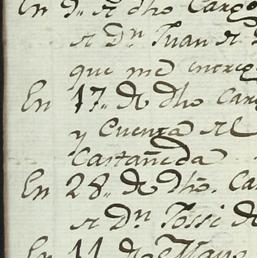 En 9.. de dho Cargo
a Dn Juan de
que me entreg
En 17.. de dho Carg
y Cuenta del
Castañeda
En 28.. de dho. Ca
a Dn Jossi de
En 11 de Mayo